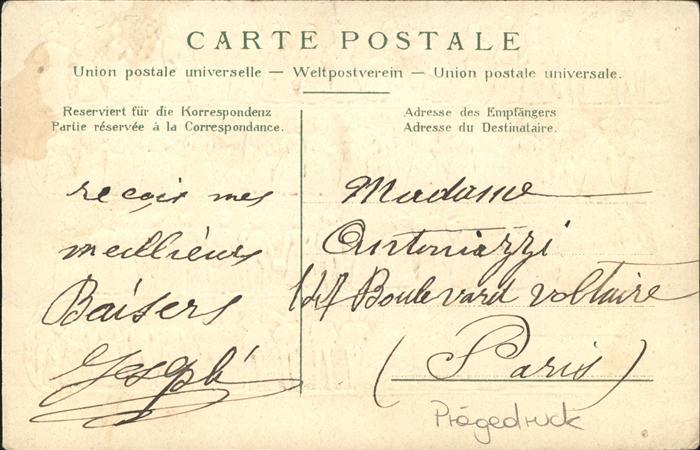 CARTE POSTALE
Union postale universelle — Weltpostverein — Union postale universale.
Reserviert für die Korrespondenz
Partie réservée à la Correspondance.
Adresse des Empfängers
Adresse du Destinataire.
recois mes
meilliéurs
Baisers
Joseph
Madame
Antoniazzi
Boulevard Voltaire
(Paris)
Prägedruck